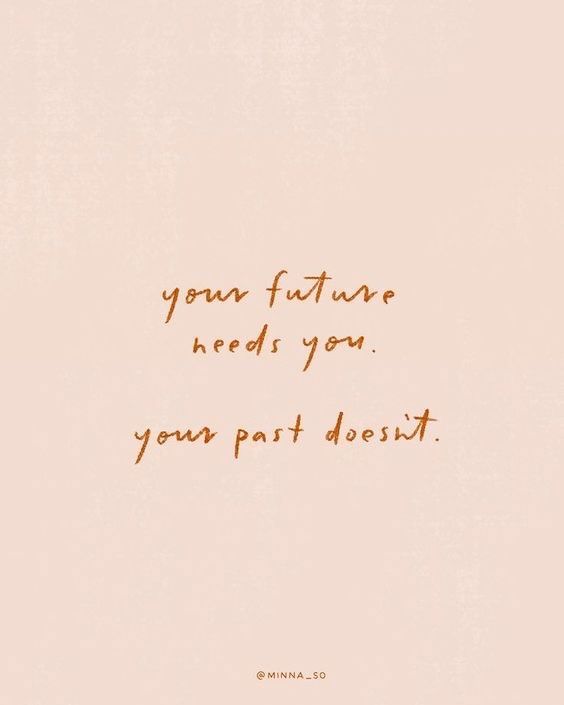 your future
needs you.
your past doesn't.
@MINNA_SO